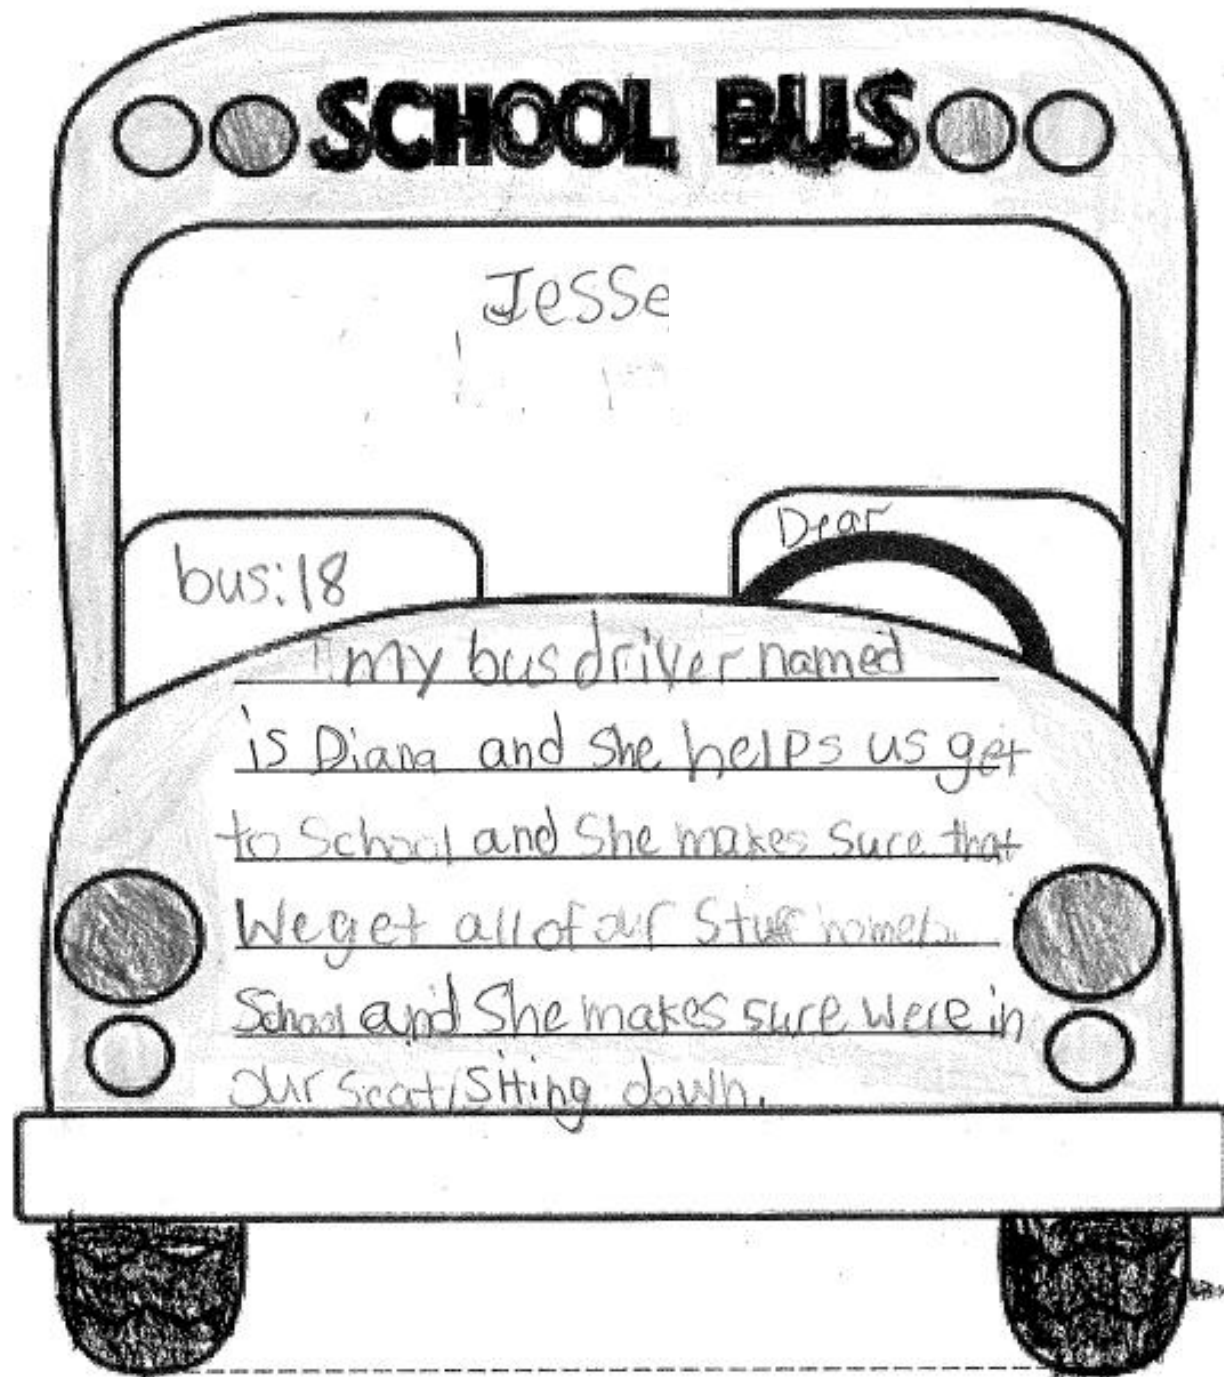 SCHOOL BUS
Jesse
Dear
bus:18
my bus driver named
is Diana and she helps us get
to School and She makes sure that
We get all of our Stuff home
School and She makes sure were in
our seat siting down.